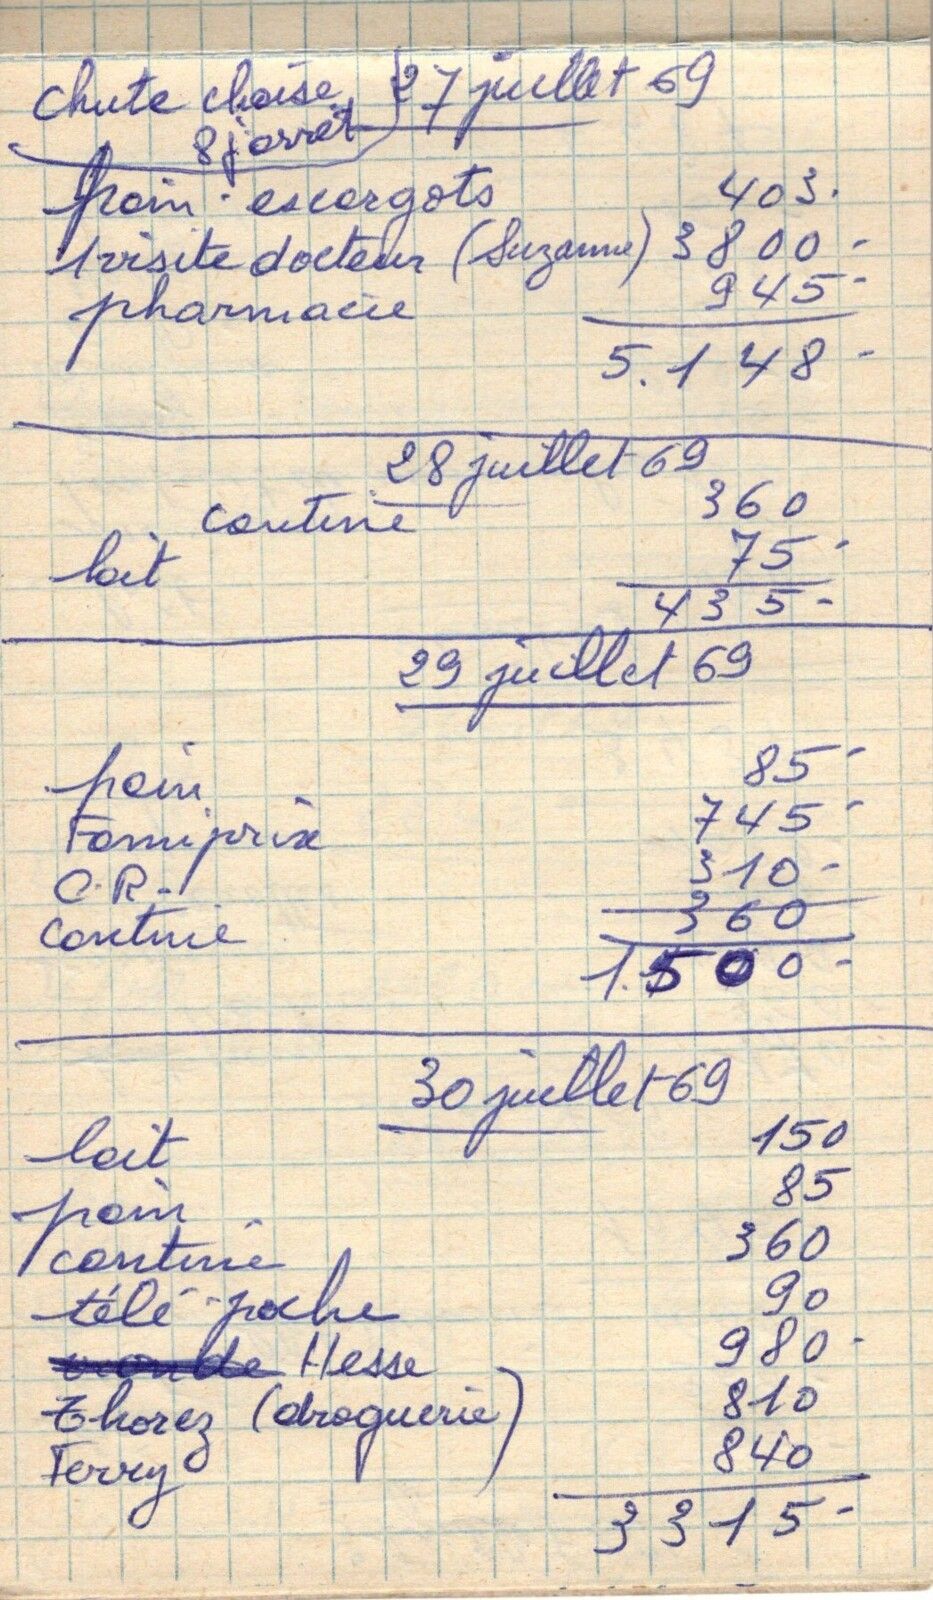 chute chaise 27 juillet 69
8 j arrêt
pain - escargots 403.
1 visite docteur (Suzanne) 3800-
pharmacie 945-
5.148-
28 juillet 69
cantine 360
lait 75-
435-
29 juillet 69
pain 85-
Famiprix 745-
C.R. 310-
cantine 360
1.500-
30 juillet 69
lait 150
pain 85
cantine 360
télé-poche 90
viande Hesse 980-
Thorez (droguerie) 810
Ferry 840
3315-